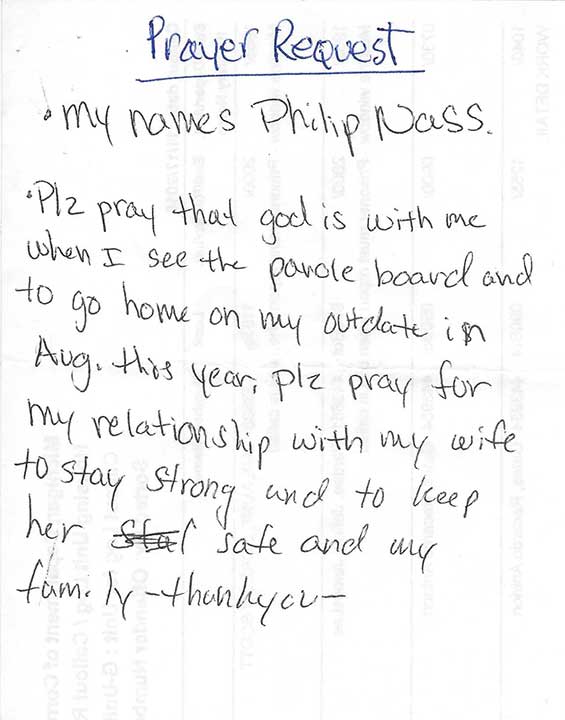 Prayer Request
• My names Philip Nass.
• Plz pray that god is with me
when I see the parole board and
to go home on my outdate in
Aug. this year, plz pray for
my relationship with my wife
to stay strong and to keep
her safe and my
family -thankyou-